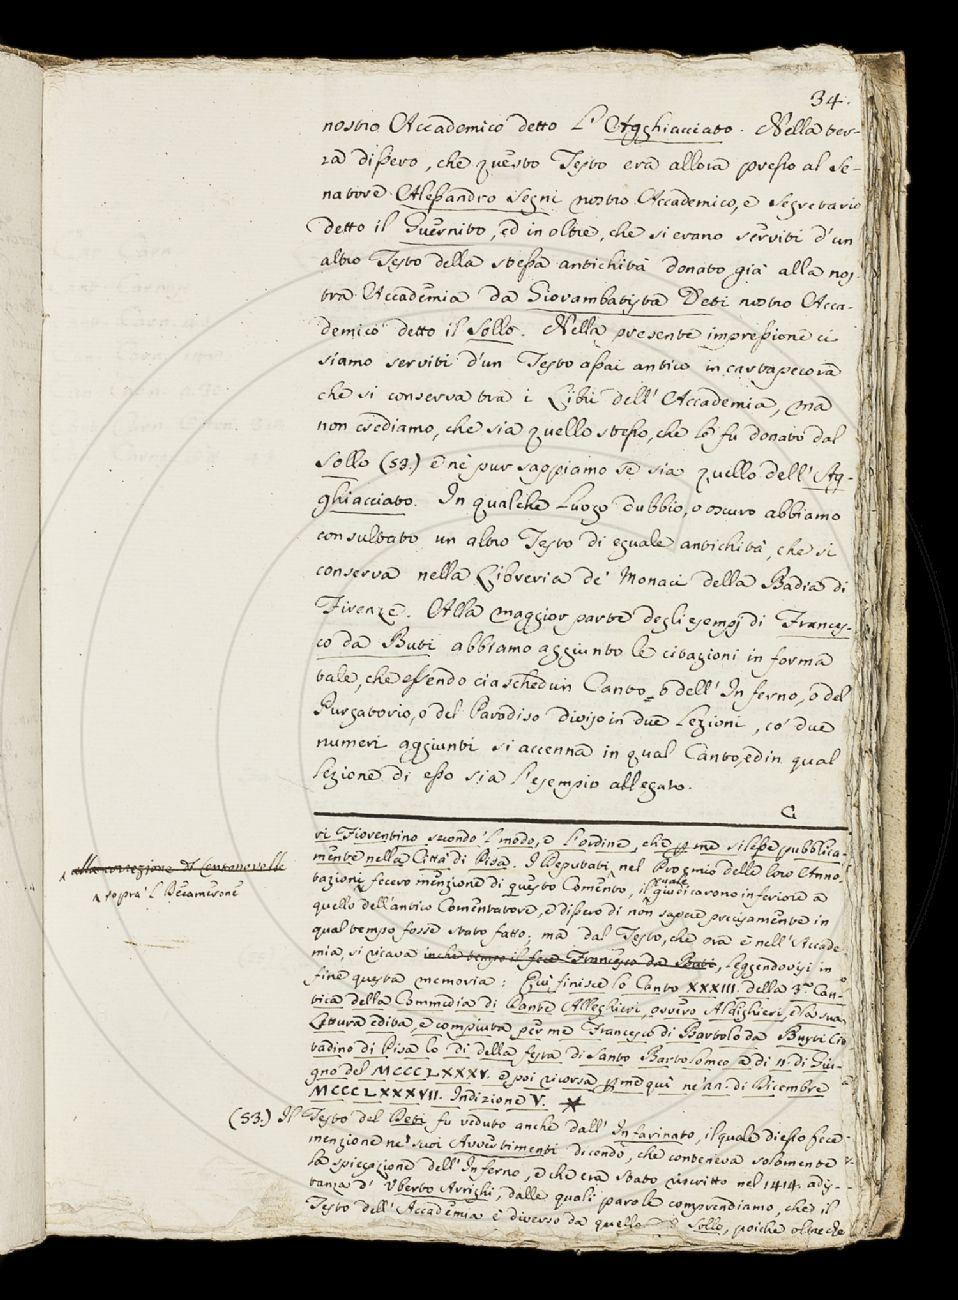 34.
nostro Accademico detto L'Agghiacciato. Nella ter-
za dissero, che questo Testo era allora presso al Se-
natore Alessandro Segni nostro Accademico, e Segretario
detto il Guernito, ed in oltre, che si erano serviti d'un
altro Testo della stessa antichità donato già alla nos-
tra Accademia da Giovambatista Deti nostro Acca-
demico detto il Sollo. Nella presente impressione ci
siamo serviti d'un Testo assai antico in cartapecora
che si conserva tra i Libri dell'Accademia, ma
non crediamo, che sia quello stesso, che le fu donato dal
Sollo (53.) e nè pur sappiamo se sia quello dell'Ag-
ghiacciato. In qualche Luogo dubbio, o oscuro abbiamo
consultato un altro Testo di eguale antichità, che si
conserva nella Libreria de' Monaci della Badia di
Firenze. Alla maggior parte degli esempj di Frances-
co da Buti abbiamo aggiunto le citazioni in forma
tale, che essendo ciaschedun Canto o dell'Inferno, o del
Purgatorio, o del Paradiso diviso in due Lezioni, co' due
numeri aggiunti si accenna in qual Canto, ed in qual
Lezione di esso sia l'esempio allegato.
G
vi Fiorentino secondo 'l modo, e l'ordine, che per me si lesse pubblica-
mente nella Città di Pisa. I Deputati nel Proemio delle loro Anno-
alla correzione del Centonovelle
sopra 'l Decamerone
tazioni fecero menzione di questo Comento, il quale giudicarono inferiore a
quello dell'antico Comentatore, e dissero di non sapere precisamente in
qual tempo fosse stato fatto; ma dal Testo, che ora è nell'Accade-
mia, si ricava in che tempo il fece Francesco da Buti, leggendovisi in
fine questa memoria: Qui finisce lo Canto XXXIII. della 3.ª Can-
tica della Commedia di Dante Alleghieri, ovvero Aldighieri, e la sua
Lettura edita, e compiuta per me Francesco di Bartolo da Buti Cit-
tadino di Pisa lo dì della festa di Santo Bartolomeo a dì 11. di Giu-
gno del MCCCLXXXV. e poi ricorsa per me qui ne' 11. di Dicembre
MCCCLXXXVII. Indizione V. *
(53.) Il Testo del Deti fu veduto anche dall'Infarinato, il quale d'esso fece
menzione ne' suoi Avvertimenti dicendo, che conteneva solamente
la spiegazione dell'Inferno, e che era stato riscritto nel 1414. ad is-
tanza d'Uberto Arrighi, dalle quali parole comprendiamo, che il
Testo dell'Accademia è diverso da quello Sollo, poichè oltre che